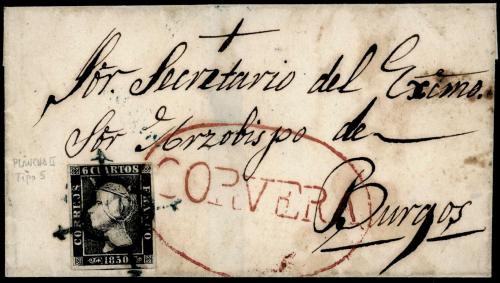 +
Sõr. Secretario del Excmo.
Sõr Arzobispo de
Burgos
CORVERA
PLANCHA II
Tipo 5
6 CUARTOS
CORREOS
FRANCO
1850